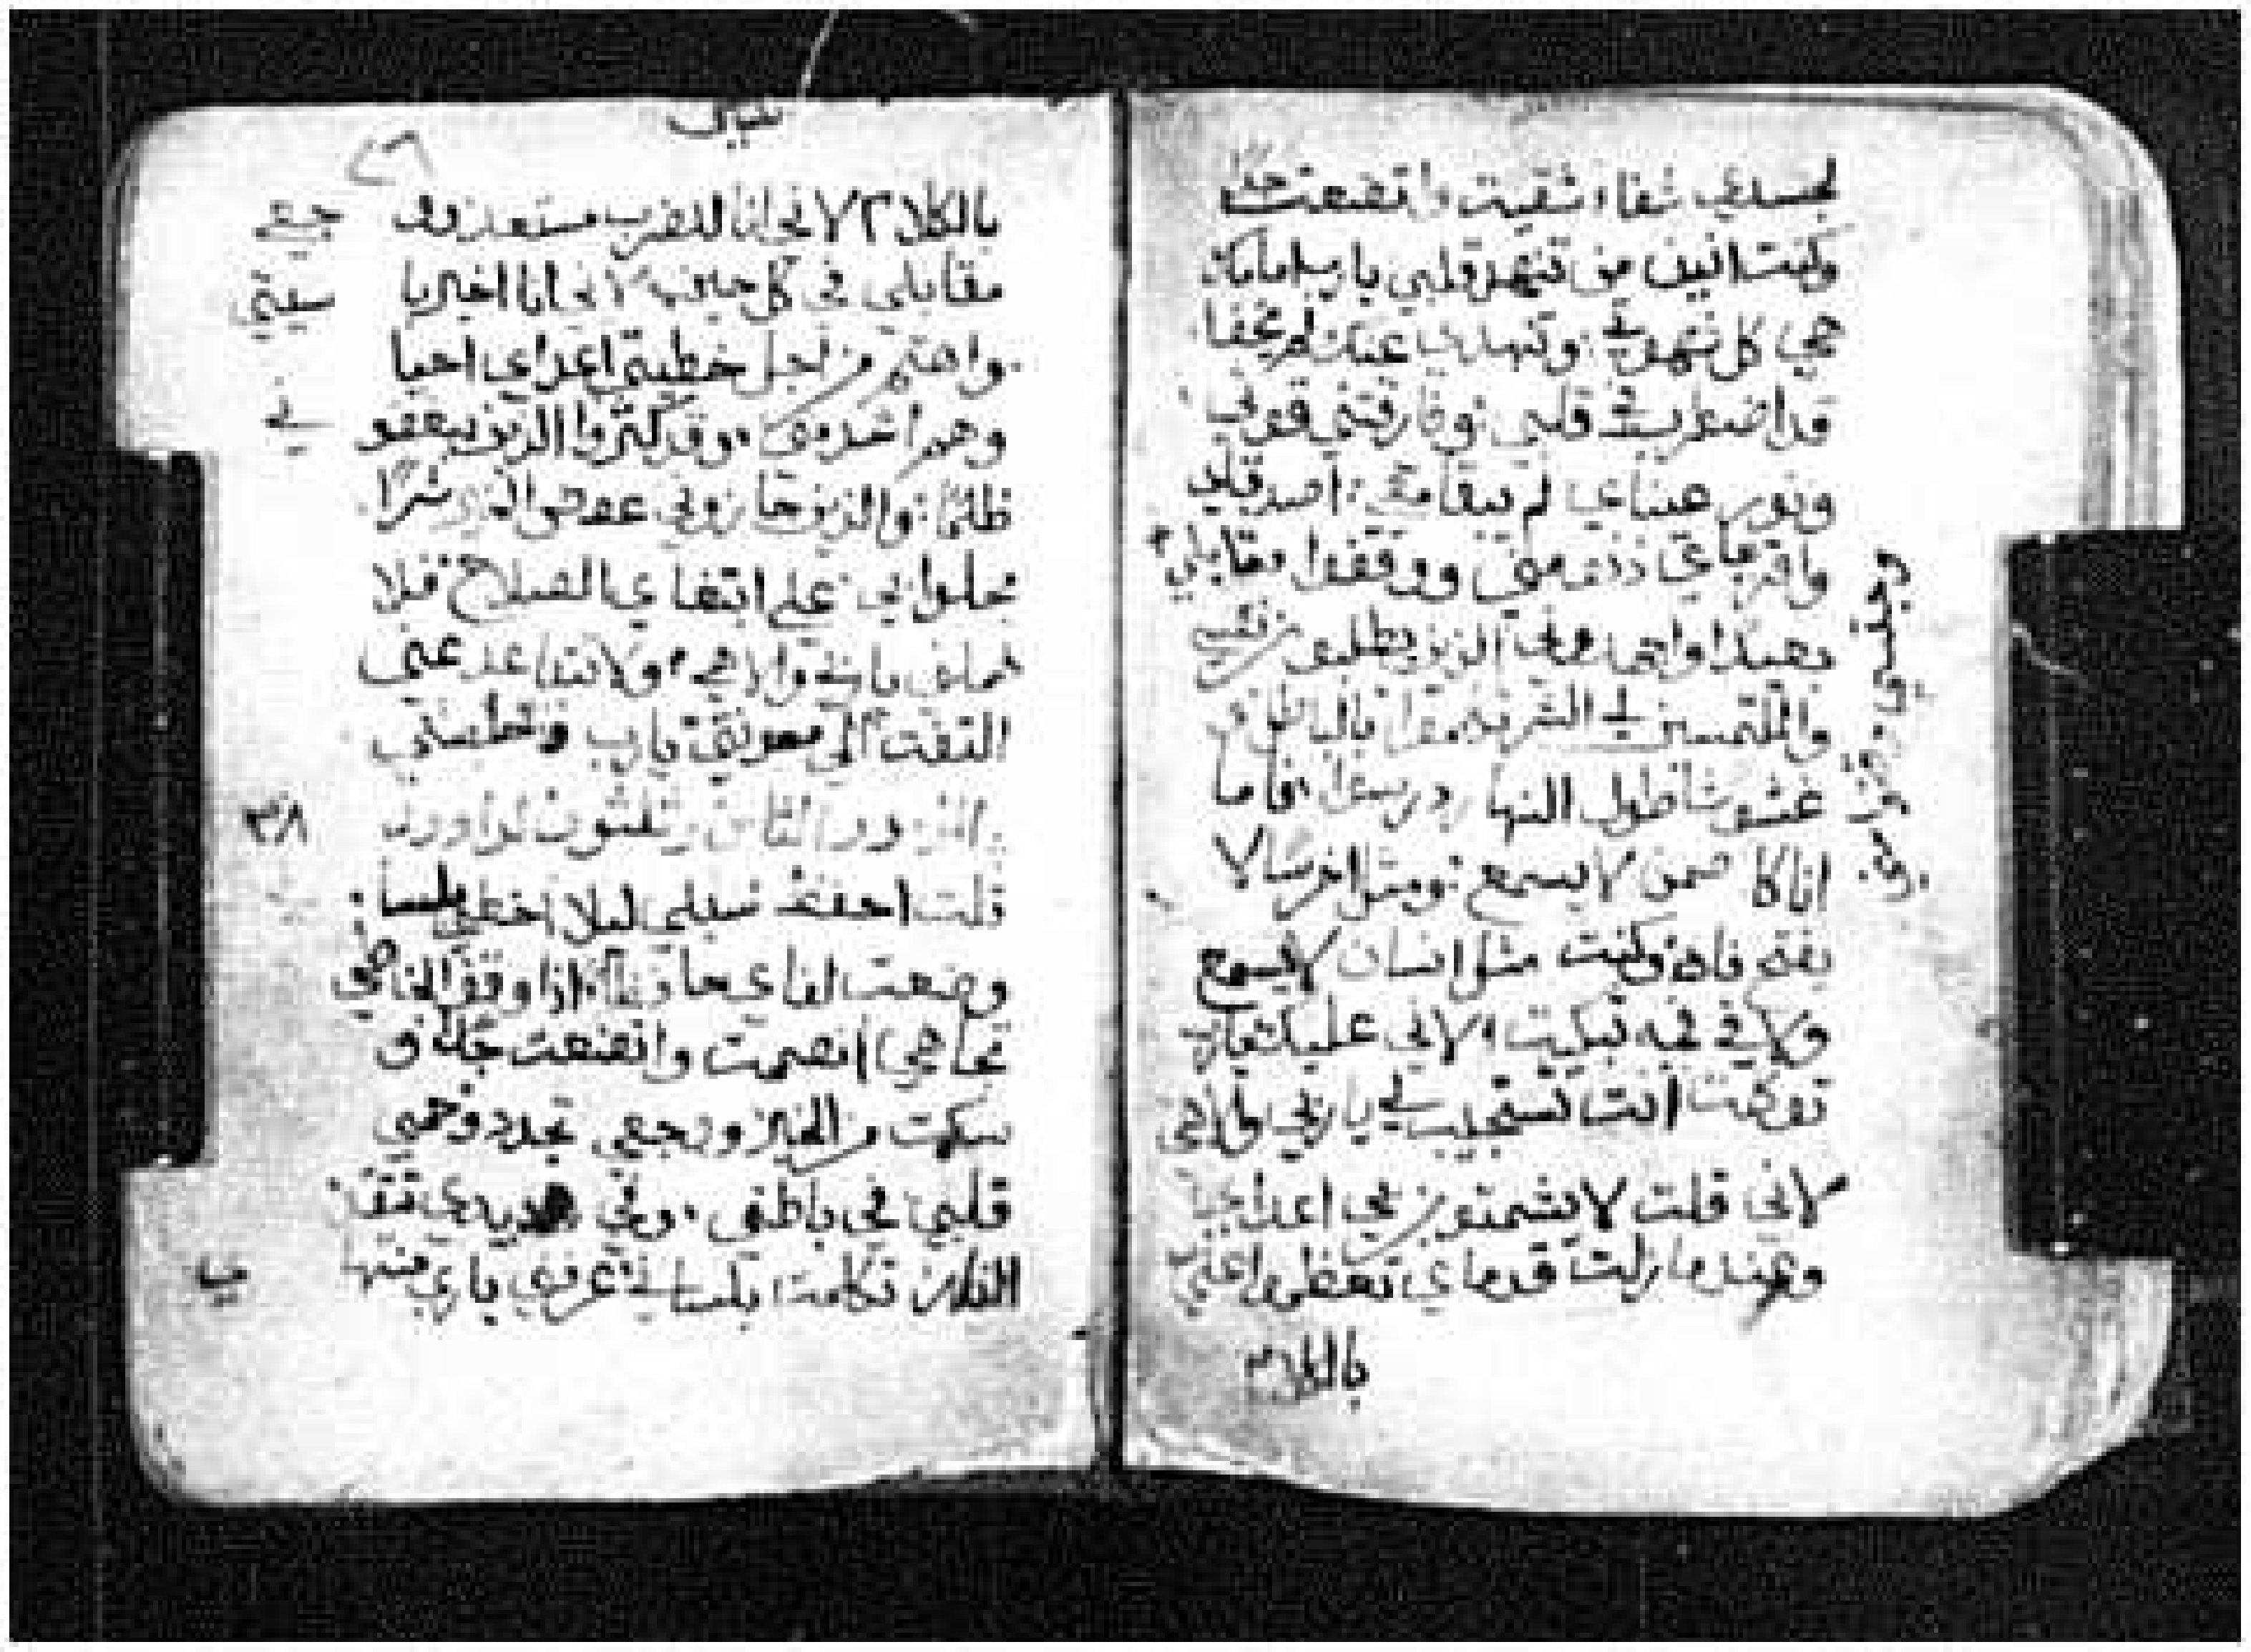 لجسدي شفاء شقيت واتضعت جدًا
وكنت اين من تنهد قلبي يارب امامك
هي كل شهوتي وتنهدي عنك لم يخفا
قد اضطرب في قلبي وفارقتني قوتي
ونور عيناي لم يبقا معي اصدقاي
واقرباي دنوا مني ووقفوا مقابلي
بعيدًا واجهدوني الذين يطلبون نفسي
والملتمسين لي الشر تكلموا بالباطل و
غشوشا طول النهار درسوا فاما
انا كا صمن لا يسمع ومثل اخرس لا
يفتح فاه وكنت مثل انسان لا يسمع
ولا في فيه تبكيت لاني عليك يارب
توكلت انت تستجيب لي يا ربي والاهي
لاني قلت لا يشمتون بي اعداي
وعندما زلت قدماي تعظموا علي
بالكلام
وجنسي
٢٦
بالكلام لاني انا للضرب مستعد ووجعي
مقابلي في كل حين لاني انا اخبر با سيتي
واهتم من اجل خطيتي اعداي احيا
وهم اشد مني وقد كثروا الذين يبغضوني
ظلمًا والذين جازوني عوض الخير شرًا
محلوا بي على ابتغاي الصلاح فلا
تهملني يا ربي والاهي ولا تتباعد عني
التفت الى معونتي يارب وخلصني
المزمور الثامن وثلثون لداوود
٣٨
قلت احفظ سبيلي ليلا اخطي بلساني
وضعت لفاي حافظًا اذا وقف الخاطي
تجاهي انصمت واتضعت جدًا و
سكت من الخير ووجعي تجدد وحمي
قلبي في باطني وفي هديدي تتقد
النار تكلمت بلساني عرفني يا رب منتهاي